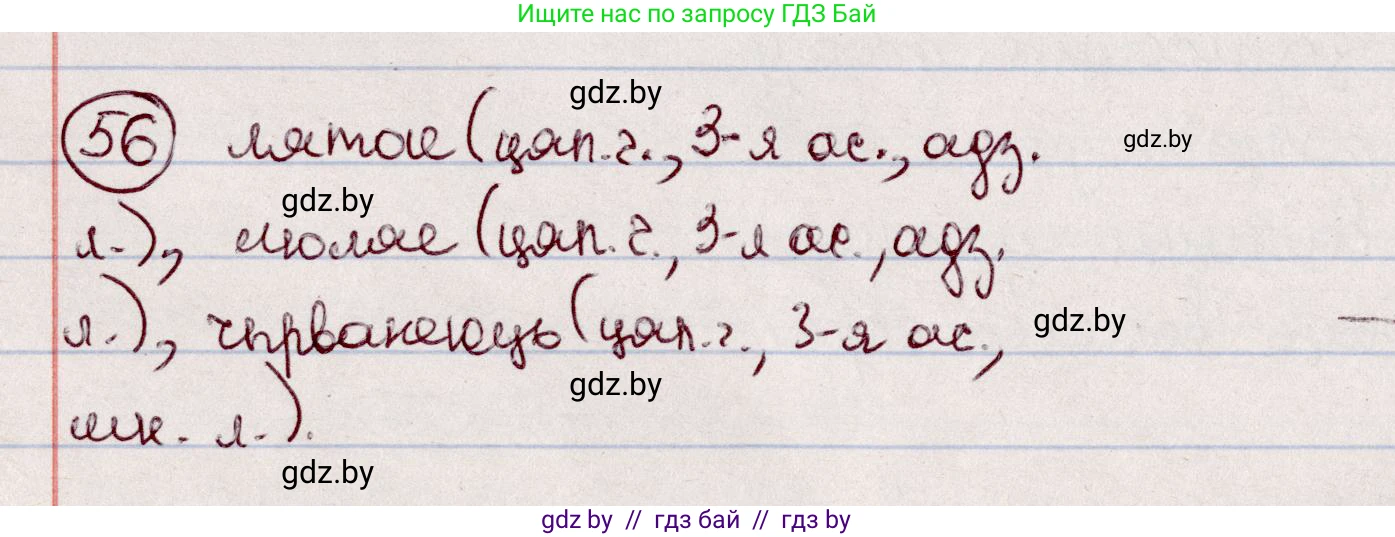 Ищите нас по запросу ГДЗ Бай
gdz.by
56 мятае (цяп. г., 3-я ас., адз.
gdz.by
gdz.by
л.), (цяп. г., 3-я ас., адз.
л.), чырванеюць (цяп. г., 3-я ас.,
gdz.by
gdz.by
мн. л.).
gdz.by
gdz by // гдз бай // гдз by